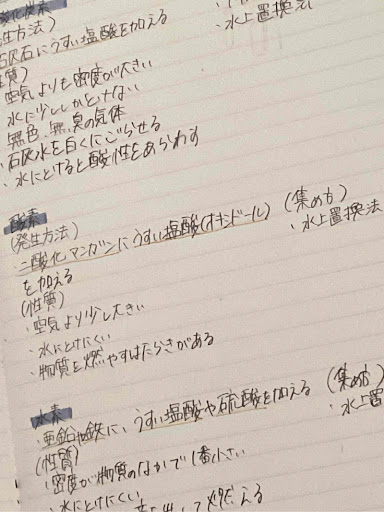 酸化炭素
生方法)
石灰石にうすい塩酸を加える
・水上置換法
性質)
空気よりも密度が大きい
水に少ししかとけない
無色、無臭の気体
・石灰水を白くにごらせる
・水にとけると酸性をあらわす
酸素
(発生方法)
(集め方)
・二酸化マンガンにうすい塩酸(オキシドール)
・水上置換法
を加える
(性質)
・空気より少し大きい
・水にとけにくい
・物質を燃やすはたらきがある
水素
・亜鉛や鉄に、うすい塩酸や硫酸を加える
(集め方)
(性質)
・水上置
・密度が物質のなかで1番小さい
・水にとけにくい
燃える